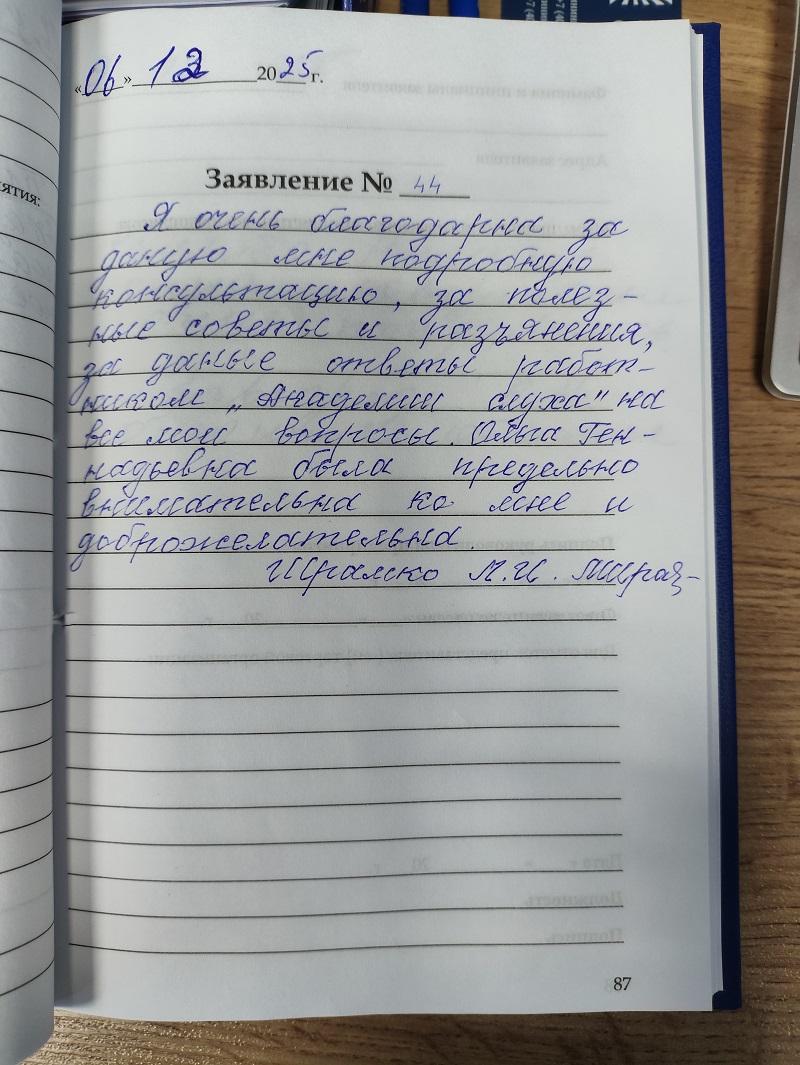 «06» 12 2025 г.
ятия:
Заявление № 44
Я очень благодарна за
даную мне подробную
консультацию, за полез-
ные советы и разъянения,
за даные ответы работ-
ником „Академии слуха" на
все мои вопросы. Ольга Ген-
надьевна была предельно
внимательна ко мне и
доброжелательна.
М.И.
87